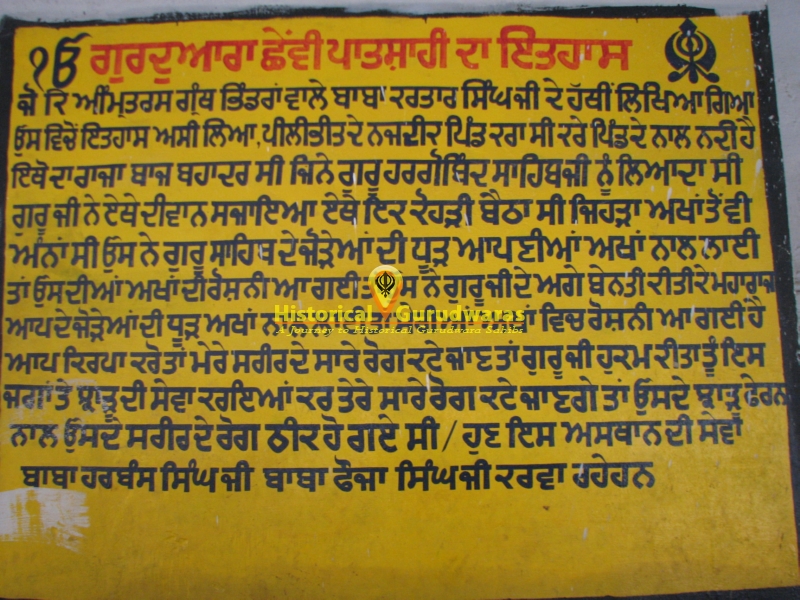 ੴ ਗੁਰਦੁਆਰਾ ਛੇਂਵੀ ਪਾਤਸ਼ਾਹੀ ਦਾ ਇਤਹਾਸ
ਜੋ ਕਿ ਅੰਮ੍ਰਤਸਰ ਗ੍ਰੰਥ ਭਿੰਡਰਾਂ ਵਾਲੇ ਬਾਬਾ ਕਰਤਾਰ ਸਿੰਘ ਜੀ ਦੇ ਹੱਥੀਂ ਲਿਖਿਆ ਗਿਆ
ਉਸ ਵਿਚੋਂ ਇਤਹਾਸ ਅਸੀ ਲਿਆ, ਪੀਲੀਭੀਤ ਦੇ ਨਜਦੀਕ ਪਿੰਡ ਕਰਾ ਸੀ ਕਰੇ ਪਿੰਡ ਦੇ ਨਾਲ ਨਦੀ ਹੈ
ਇਥੋ ਦਾ ਰਾਜਾ ਬਾਜ ਬਹਾਦਰ ਸੀ ਜਿਨੇ ਗੁਰੂ ਹਰਗੋਬਿੰਦ ਸਾਹਿਬ ਜੀ ਨੂੰ ਲਿਆਦਾ ਸੀ
ਗੁਰੂ ਜੀ ਨੇ ਏਥੇ ਦੀਵਾਨ ਸਜਾਇਆ ਏਥੇ ਇਕ ਕੋਹੜੀ ਬੈਠਾ ਸੀ ਜਿਹੜਾ ਅਖਾਂ ਤੋਂ ਵੀ
ਅੰਨਾਂ ਸੀ ਉਸ ਨੇ ਗੁਰੂ ਸਾਹਿਬ ਦੇ ਜੋੜੇਆਂ ਦੀ ਧੂੜ ਆਪਣੀਆਂ ਅਖਾਂ ਨਾਲ ਲਾਈ
ਤਾਂ ਉਸ ਦੀਆਂ ਅਖਾਂ ਦੀ ਰੋਸ਼ਨੀ ਆ ਗਈ ਨੇ ਗੁਰੂ ਜੀ ਦੇ ਅਗੇ ਬੇਨਤੀ ਕੀਤੀ ਕੇ ਮਹਾਰਾਜ
ਆਪ ਦੇ ਜੋੜੇਆਂ ਦੀ ਧੂੜ ਅਖਾਂ ਵਿਚ ਰੋਸ਼ਨੀ ਆ ਗਈ ਹੈ
ਆਪ ਕਿਰਪਾ ਕਰੋ ਤਾਂ ਮੇਰੇ ਸਰੀਰ ਦੇ ਸਾਰੇ ਰੋਗ ਕਟੇ ਜਾਣ ਤਾਂ ਗੁਰੂ ਜੀ ਹੁਕਮ ਕੀਤਾ ਤੂੰ ਇਸ
ਜਗਾਂ ਤੇ ਝਾੜੂ ਦੀ ਸੇਵਾ ਕਰਾਇਆਂ ਕਰ ਤੇਰੇ ਸਾਰੇ ਰੋਗ ਕਟੇ ਜਾਣਗੇ ਤਾਂ ਉਸਦੇ ਝਾੜੂ ਫੇਰਨ
ਨਾਲ ਉਸਦੇ ਸਰੀਰ ਦੇ ਰੋਗ ਠੀਕ ਹੋ ਗਏ ਸੀ / ਹੁਣ ਇਸ ਅਸਥਾਨ ਦੀ ਸੇਵਾਂ
ਬਾਬਾ ਹਰਬੰਸ ਸਿੰਘ ਜੀ ਬਾਬਾ ਫੌਜਾ ਸਿੰਘ ਜੀ ਕਰਵਾ ਰਹੇ ਹਨ
Historical Gurudwaras
A Journey to Historical Gurudwara Sahibs